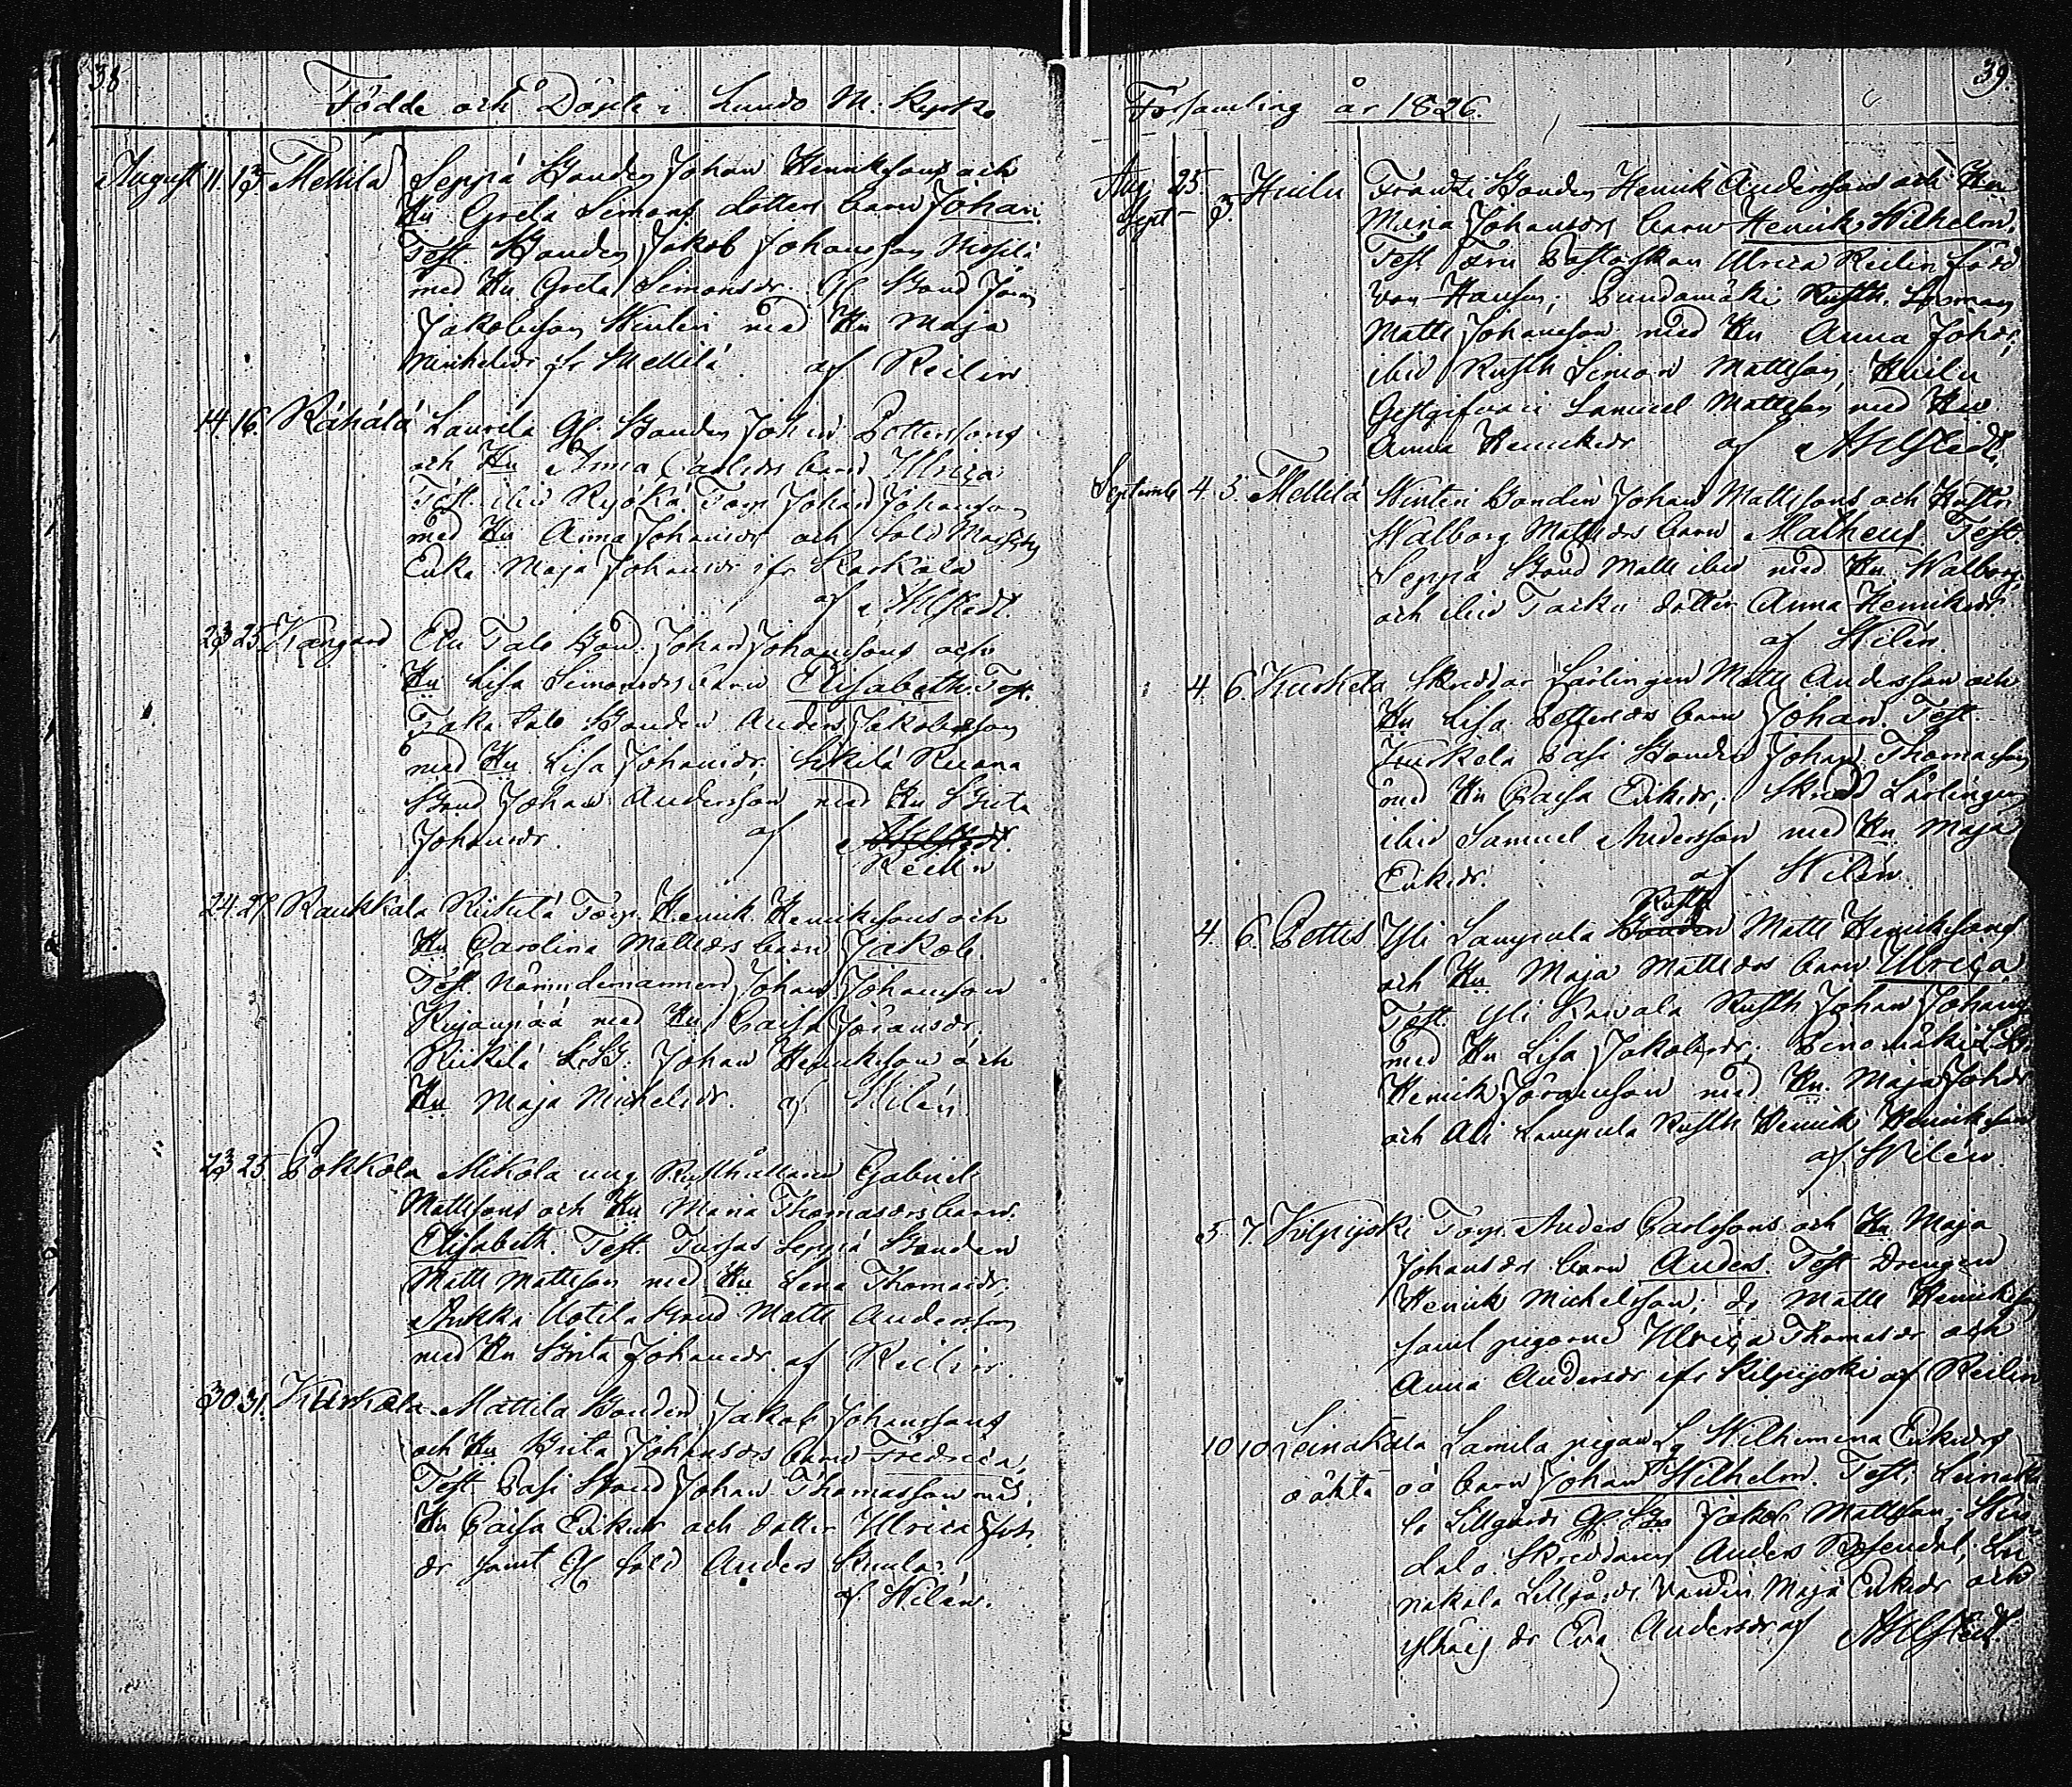 38
Födde och Döpte i Lundo M. Kyrko
August 11. 13 Mellilä Seppä Bonden Johan Henrikssons och
Hu Greta Simons dotters barn Johan.
Test. Bonden Jakob Johansson
med Hu Greta Simonsdr. Gl Bond Jöran
Jakobsson Wintin med Hu Maja
Michelsdr fr Mellilä af Reilin
14. 16. Rähälä Laurila Gl. Bonden Johan Pettersons
och Hu Anna Carlsdrs barn Ulrica.
Test. ibid Torp Johan Johansson
med Hu Anna Johansdr och Sold
Enka Maja Johansdr ifr Karkola
af Ahlstedt.
23 25 Kangand Talo Bond. Johan Johanssons och
Hu Lisa Simonsdrs barn Elisabeth. Test.
Taka Talo Bonden Anders Jakobsson
med Hu Lisa Johansdr,
Bond Johan Andersson med Hu Brita
Johansdr. af Ahlstedt.
Reilin
24. 27 Raukkala Torp. Henrik Henrikssons och
Hu Carolina Mattsdrs barn Jakob.
Test. Nämndemannen Johan Johansson
med Hu Caisa Jöransdr,
Johan Henriksson och
Hu Maja Michelsdr. af Wilén.
23 25. Pokkola Mikola ung Rusthållaren Gabriel
Mattssons och Hu Maria Thomasdrs barn
Elisabeth. Test. Seppä Bonden
Matts Mattsson med Hu Lena Thomasdr,
Uotila Bond Matts Andersson
med Hu Brita Johansdr af Reilin.
30 31. Kurkela Mattila Bonden Jakob Johanssons
och Hu Brita Johansdrs barn Fredrica,
Test Pasi Bond Johan Thomasson med
Hu Caisa Eriksdr och dotter Ulrica Joh.
dr samt Gl. Sold Anders
af Wilén.
39.
Församling år 1826.
Aug 25. Huilu Frantsi Bonden Henrik Anderssons och Hu
Sept 3. Maria Johansdrs barn Henrik Wilhelm.
Test Fru Ulrica Reilin född
von Hausen; Matts Johansson med Hu Anna Johdr,
ibid Rusth Simon Mattsson; Huilu
Gestgifvare Samuel Mattsson med Hu
Anna Henriksdr af Ahlstedt.
Septemb 4. 5. Mellilä Wintin Bonden Johan Mattssons och Hustr
Walborg Mattsdrs barn Matheus. Test.
Seppä Bond Matts ibid med Hu Walborg
och ibid dotter Anna Henriksdr
af Wilén.
4 6. Kurkela Skreddar Lärlingen Matts Andersson och
Hu Lisa Pettersdrs barn Johan. Test.
Kurkela Pasi Bonden Johan Thomasson
med Hu Caisa Eriksdr, Skredd Lärlingen
ibid Samuel Andersson med Hu Maja
Eriksdr. af Wilén.
Rusth
4. 6. Pettis Yli Lampula Bonden Matts Henrikssons
och Hu Maja Mattsdrs barn Ulrica
Test. Yli Rusth Johan Johans
med Hu Lisa Jakobsdr.
Henrik Jöransson med Hu. Maja Johdr
och Ali Lampula Rusth Henrik Henriksson
af Wilén.
5 7 Kilpijoki Torp. Anders Carlssons och Hu Maja
Johansdrs barn Anders. Test Drengen
Henrik Michelsson, do Matts Henriksson
samt pigorne Ulrica Thomasdr och
Anna Andersdr ifr Kilpijoki af Reilin
10 10 Leinakala Lamila pigan Lg Wilhemina Eriksdrs
oäkta oä barn Johan Wilhelm. Test. Leinaka
la Lillgårds Gl Bo Jakob Mattsson;
dala Skreddaren Anders Rosendal, Lei
nakala Lillgårds Maja Eriksdr och
dr Eva Andersdr af Ahlstedt.